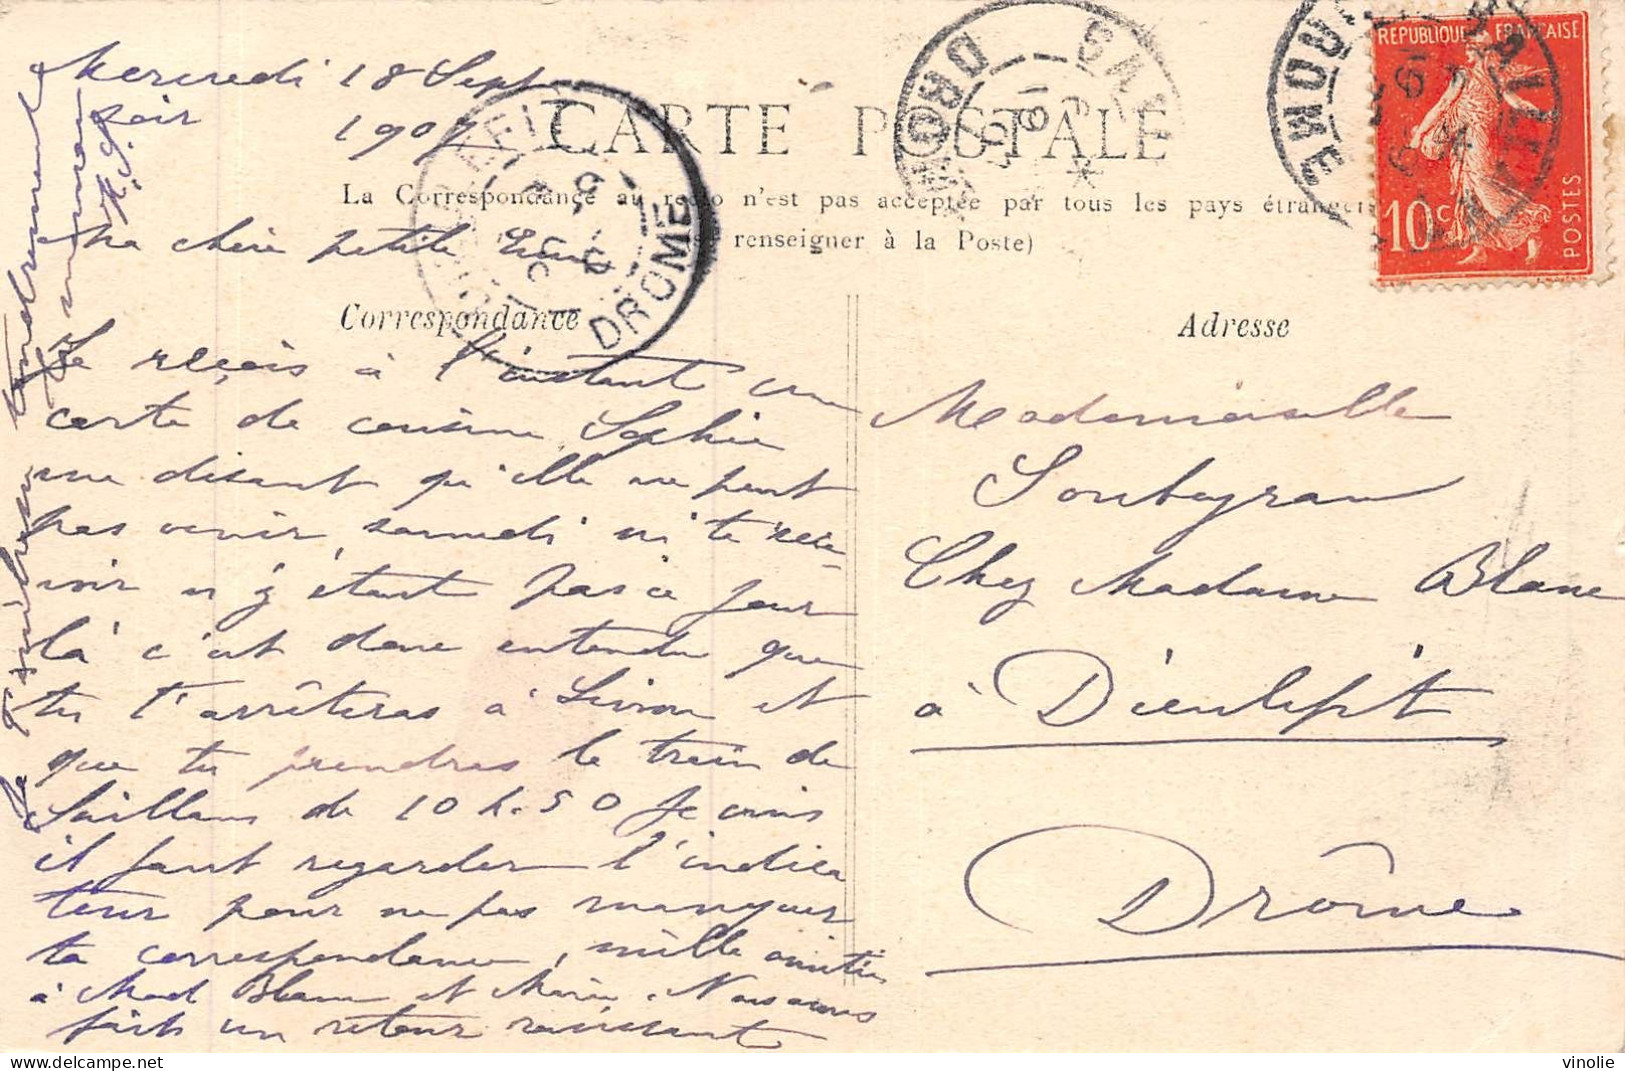 Mercredi 18 Sept
soir 1907
CARTE POSTALE
La Correspondance au recto n'est pas acceptée par tous les pays étrangers
renseigner à la Poste)
Correspondance
Adresse
Ma chère petite
Je reçois à l'instant une
carte de cousine Sophie
me disant qu'elle ne peut
pas venir samedi ni te rece-
voir n'y étant pas ce jour
là c'est donc entendu que
tu t'arrêteras à Livron et
que tu prendras le train de
Saillans de 10 h. 50 Je crois
il faut regarder l'indica
teur pour ne pas manquer
ta correspondance, mille amitiés
à Mad Blanc et Marie. Nous avons
fait un retour ravissant
Je t'embrasse tendrement
ta maman
Mademoiselle
Soubeyran
Chez Madame Blanc
à Dieulefit
Drôme
REPUBLIQUE FRANÇAISE
10 c
POSTES
DROME
DROME
DROME
vinolie